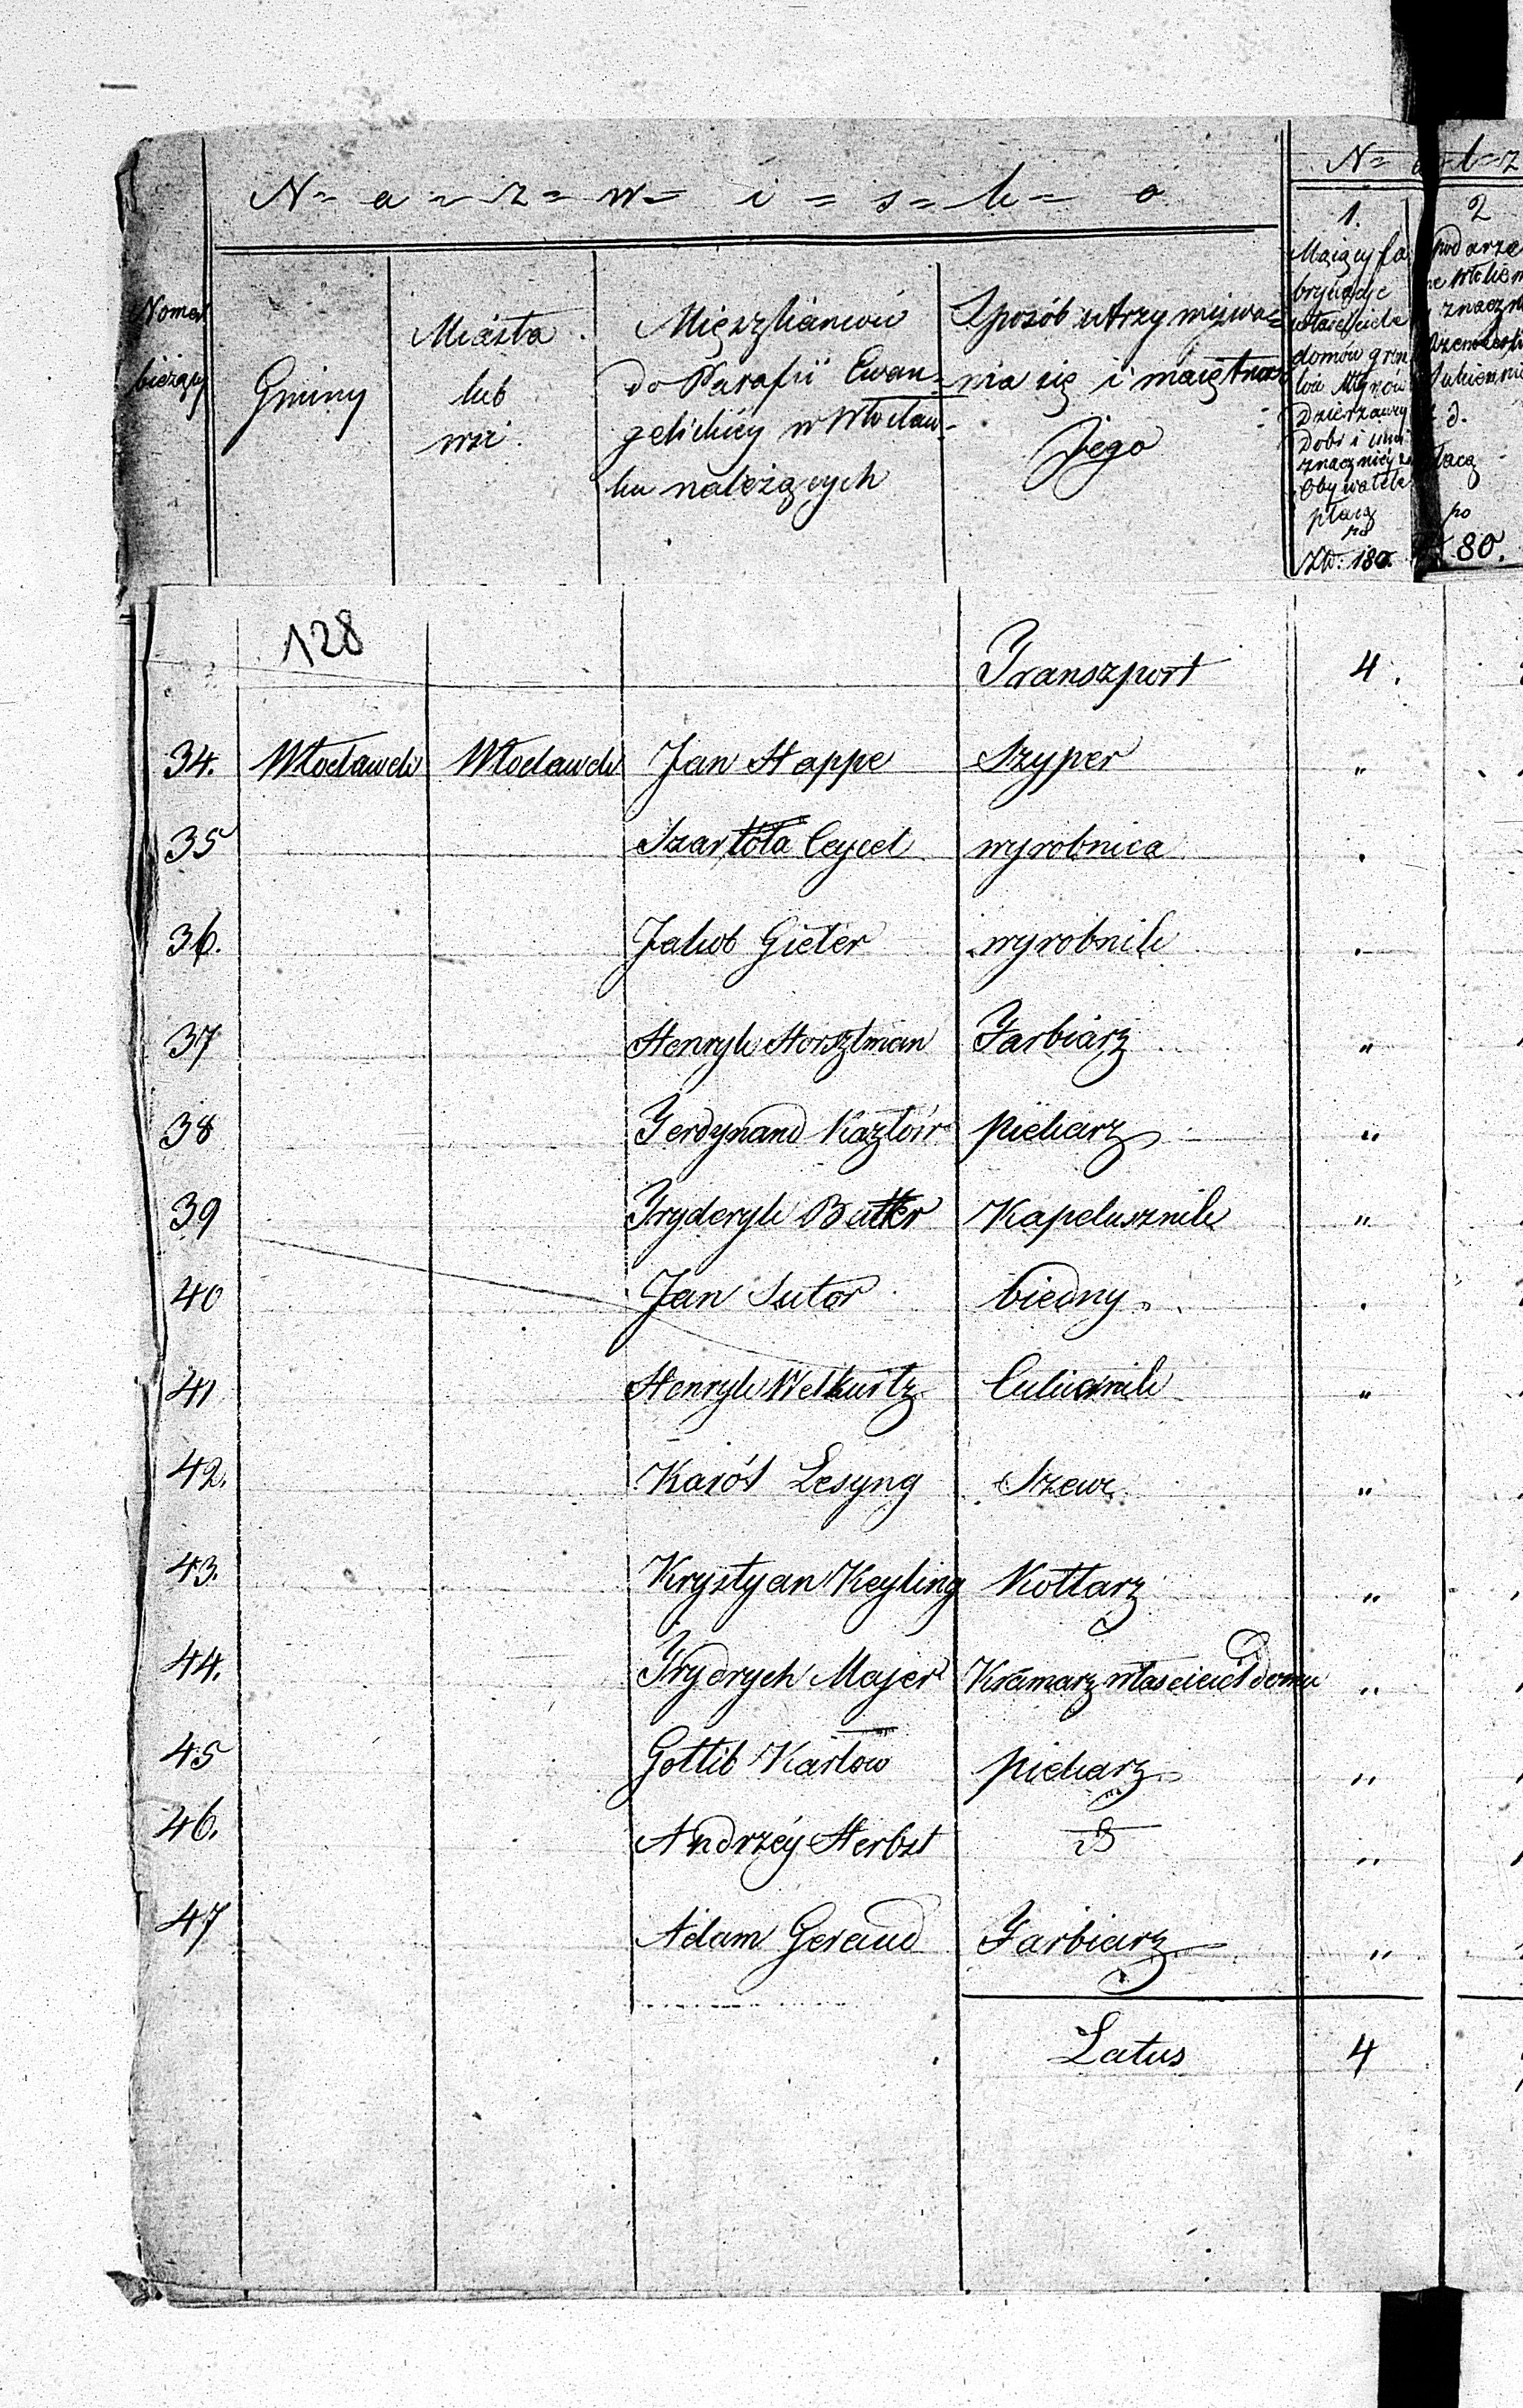 N=a=z=w=i=s=k=o
Numer bieżący
Gminy
Miasta
lub
wsi
Mięszkańców
do Parafii Ewan=
gelickiey w Włocław=
ku należących
Sposób utrzymywa=
nia się i maiętność
Jego
1.
Maiący fa
brykacje
właściciele
domów
Dzierzawcy
Dobr i inni
znacznieysi
Obywatele
płacą
po
Złp: 180.
2
płacą
po
80.
128
Transzport 4.
34. Włocławek Włocławek Jan Happe Szyper "
35 Szarlota Ceycel wyrobnica .
36. Jakub Gieler wyrobnik .
37 Henryk Horsztman Farbiarz "
38 Ferdynand piekarz "
39 Fryderyk Butler Kapelusznik "
40 Jan Sutor biedny .
41 Henryk Welkurtz Cukiernik "
42. Karól Lesyng Szewc "
43. Krystyan Keyling Kotlarz "
44. Frydrych Majer Kramarz właściciel domu "
45 Gottlib Karlow piekarz "
46. Andrzéy Herbst "
47 Adam Geraud Farbiarz "
Latus 4